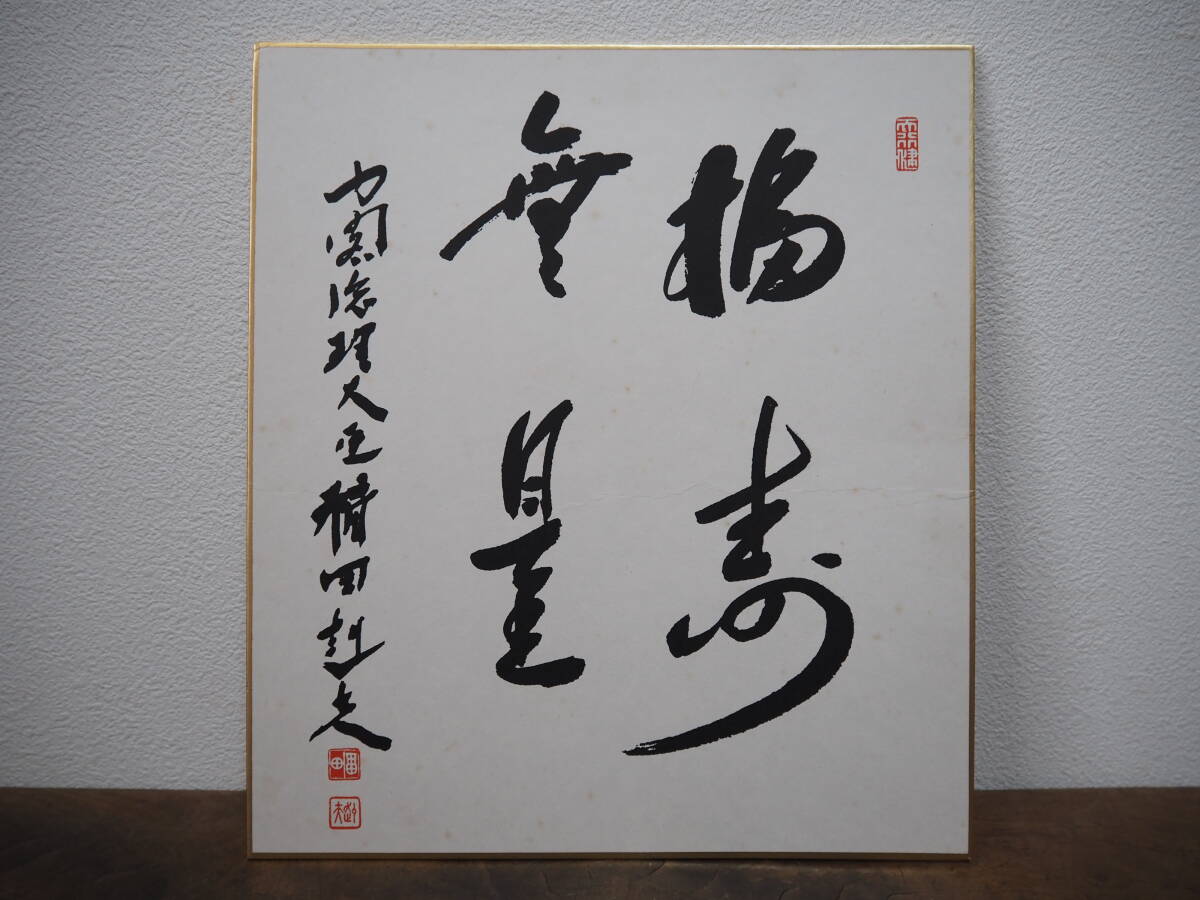 福寿
無量
内閣総理大臣 福田赳夫